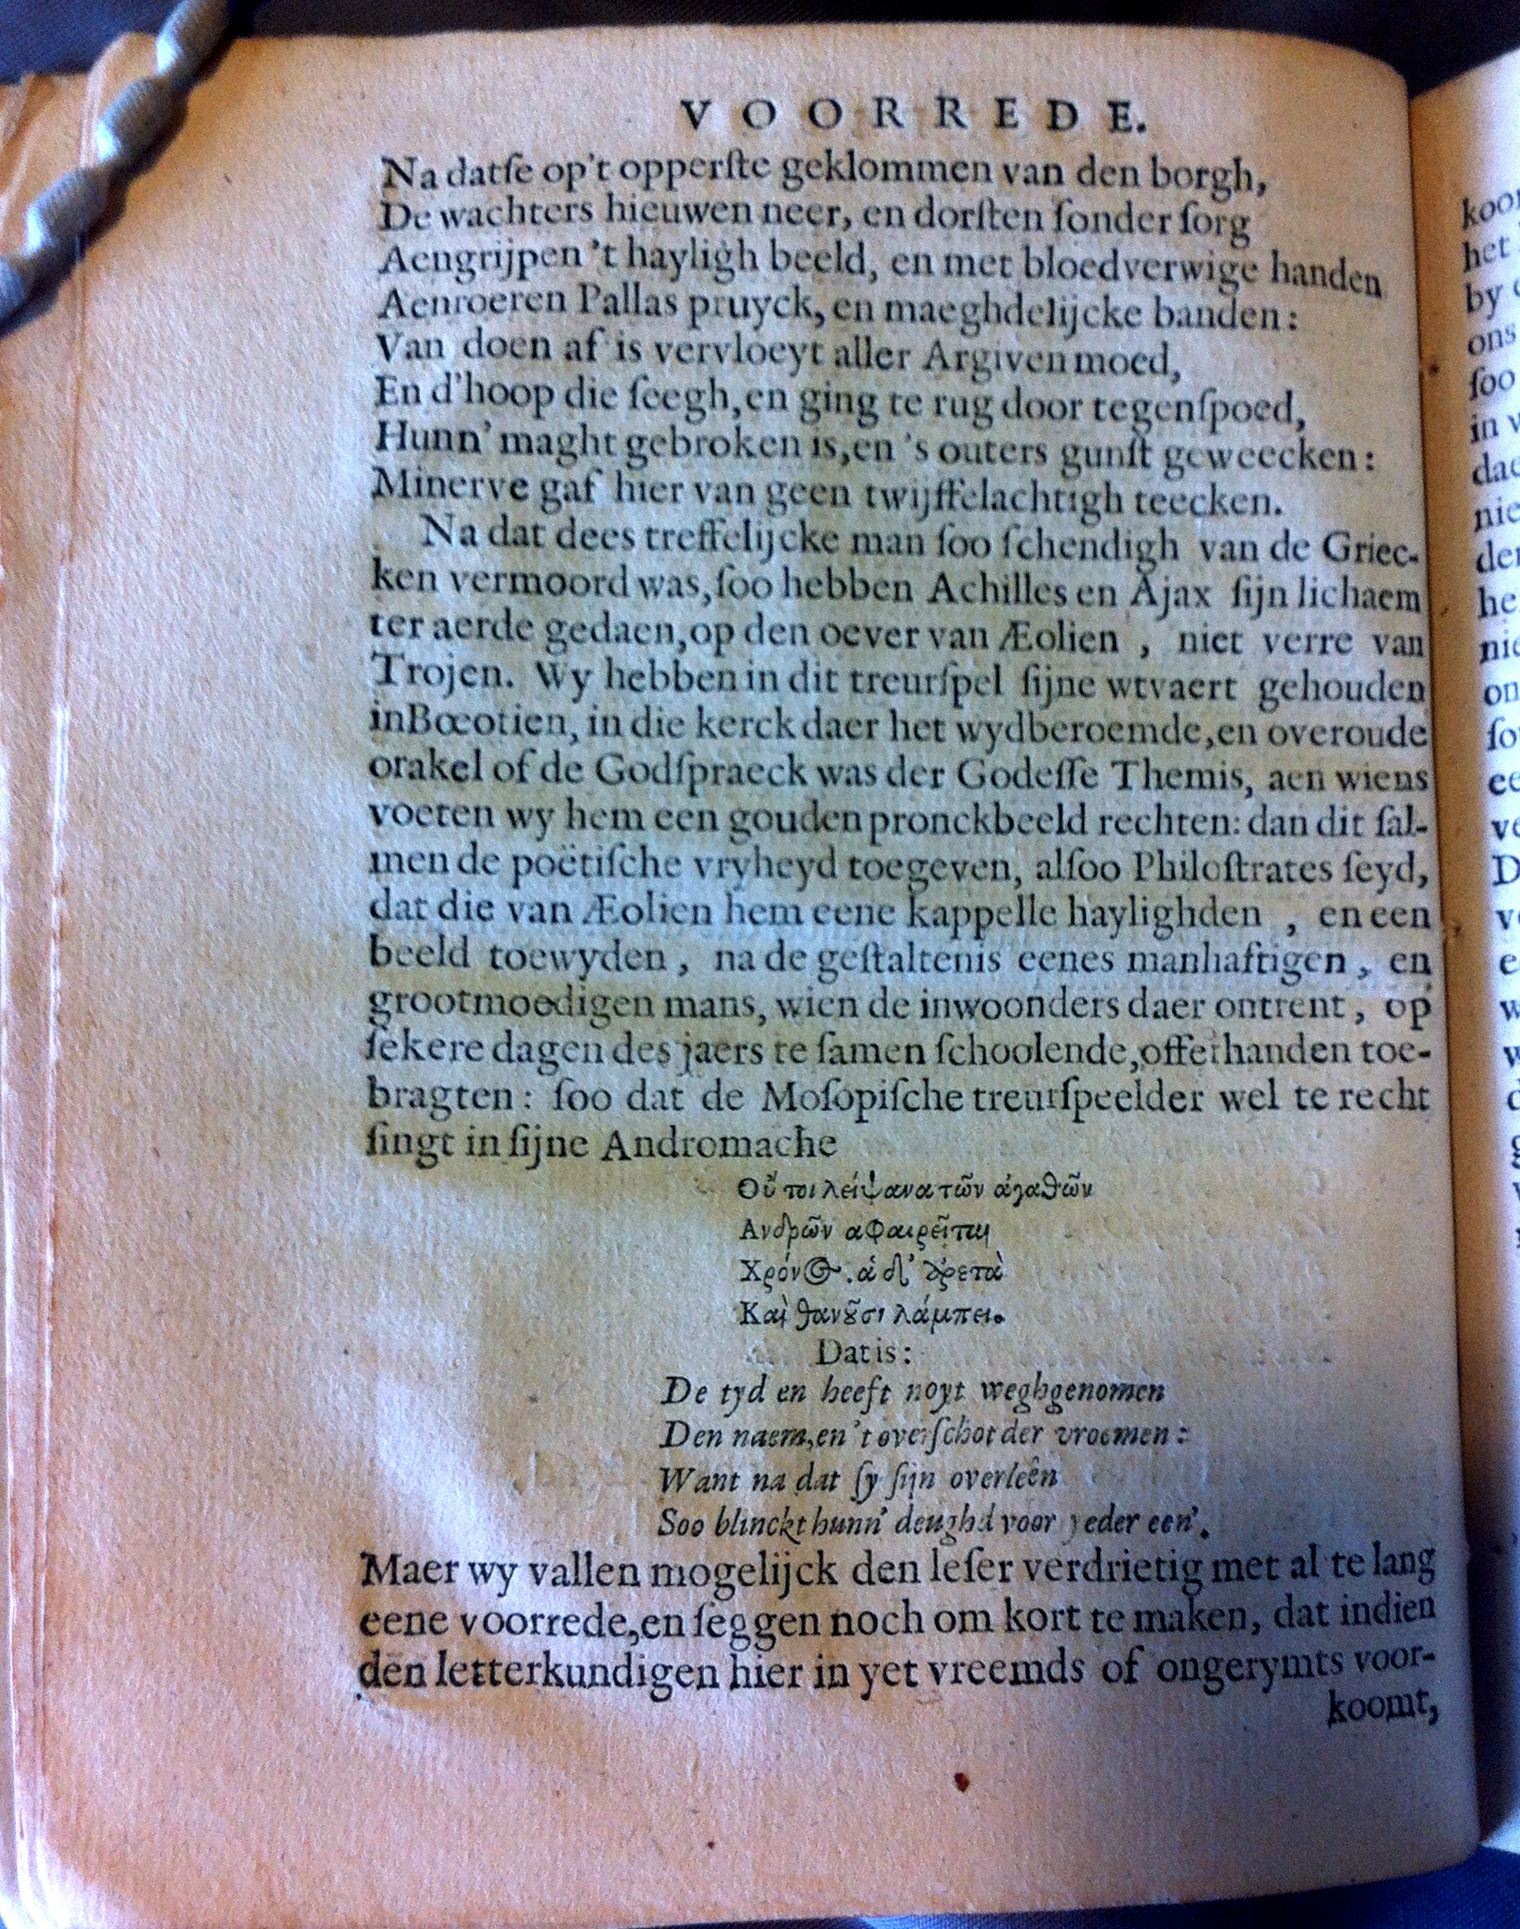 VOORREDE.
Na datſe op't opperſte geklommen van den borgh,
De wachters hieuwen neer, en dorſten ſonder ſorg
Aengrijpen 't hayligh beeld, en met bloedverwige handen
Aenroeren Pallas pruyck, en maeghdelijcke banden:
Van doen af is vervloeyt aller Argiven moed,
En d'hoop die ſeegh, en ging te rug door tegenſpoed,
Hunn' maght gebroken is, en 's outers gunſt geweecken:
Minerve gaf hier van geen twijffelachtigh teecken.
Na dat dees treffelijcke man ſoo ſchendigh van de Griec-
ken vermoord was, ſoo hebben Achilles en Ajax ſijn lichaem
ter aerde gedaen, op den oever van Æolien, niet verre van
Trojen. Wy hebben in dit treurſpel ſijne wtvaert gehouden
in Bœotien, in die kerck daer het wydberoemde, en overoude
orakel of de Godſpraeck was der Godeſſe Themis, aen wiens
voeten wy hem een gouden pronckbeeld rechten: dan dit ſal-
men de poëtiſche vryheyd toegeven, alſoo Philoſtrates ſeyd,
dat die van Æolien hem eene kappelle haylighden, en een
beeld toewyden, na de geſtaltenis eenes manhaftigen, en
grootmoedigen mans, wien de inwoonders daer ontrent, op
ſekere dagen des jaers te ſamen ſchoolende, offerhanden toe-
bragten: ſoo dat de Moſopiſche treurſpeelder wel te recht
ſingt in ſijne Andromache
Οὔ τοι λείψανα τῶν ἀγαθῶν
Ανδρῶν αφαιρεῖται
Χρόνος. ἁ δ' ἀρετὰ
Καὶ θανοῦσι λάμπει.
Dat is:
De tyd en heeft noyt weghgenomen
Den naem, en 't overſchot der vroemen:
Want na dat ſy ſijn overleên
Soo blinckt hunn' deughd voor yeder een'.
Maer wy vallen mogelijck den leſer verdrietig met al te lang
eene voorrede, en ſeggen noch om kort te maken, dat indien
den letterkundigen hier in yet vreemds of ongerymts voor-
koomt,